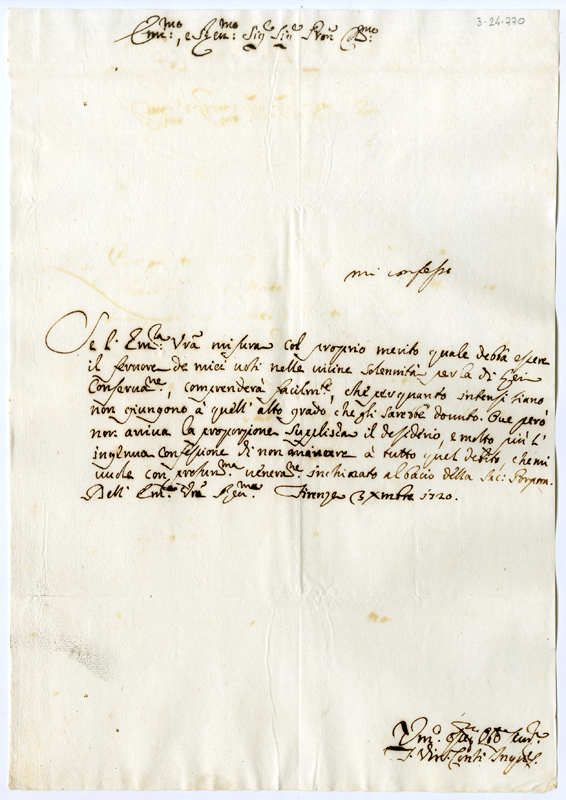 3-24-770
Em:mo, e Rev:mo Sig.e Sig.e Pron Col:mo
mi confesso
Se l'Em:za Vra misura col proprio merito quale debba essere
il fervore de miei voti nelle vicine solennità per la di Lei
Conservaz:ne, comprenderà facilm:te, che per quanto intensi siano
non giungono à quell'alto grado che gli sarebbe dovuto. Ove però
non arriva la proporzione supplisca il desiderio, e molto più l'
ingenua confessione di non mancare à tutto quel debito che mi
vuole con profon:ma veneraz:ne inchinato al bacio della Sac: Porpora.
Dell'Em:za Vra Rev:ma Firenze 3 Xmbre 1720.
Um:o
F. Vin: Conti Inqui.